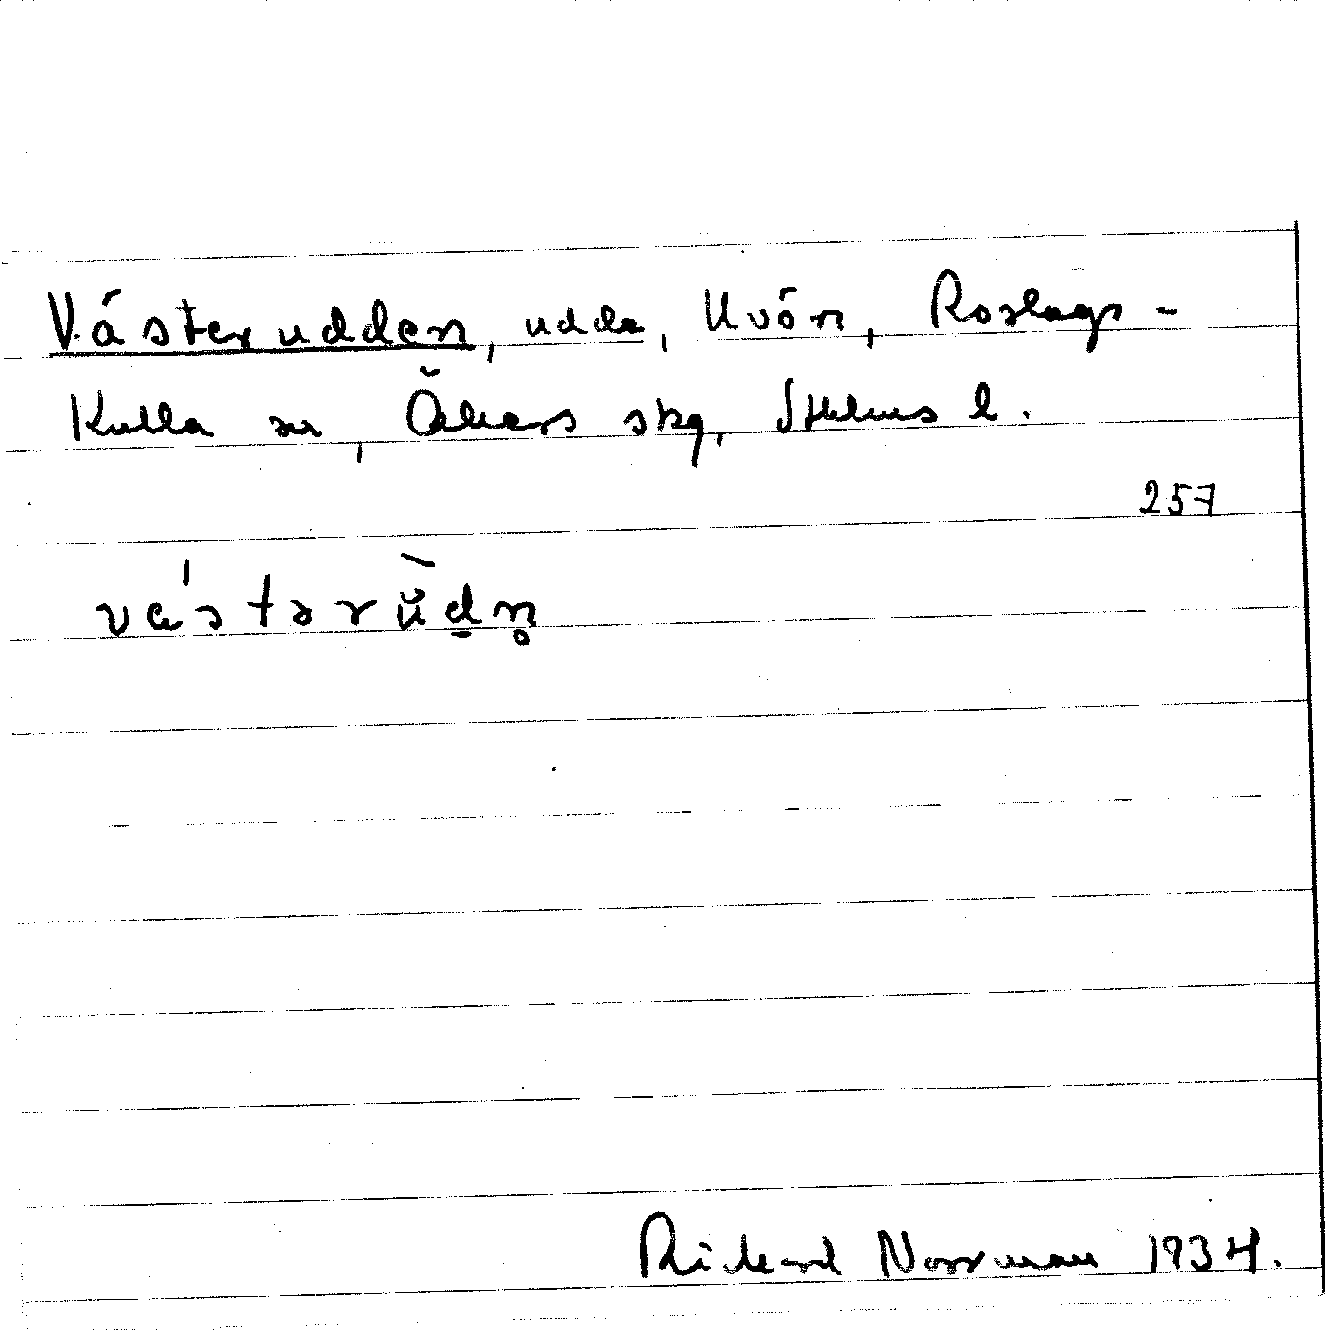 Västerudden, udde, Uvön, Roslags-
Kulla sn, Åkers skg, Sthlms l.
257
vǽstərùdn̥
Rickard Norrman 1934.